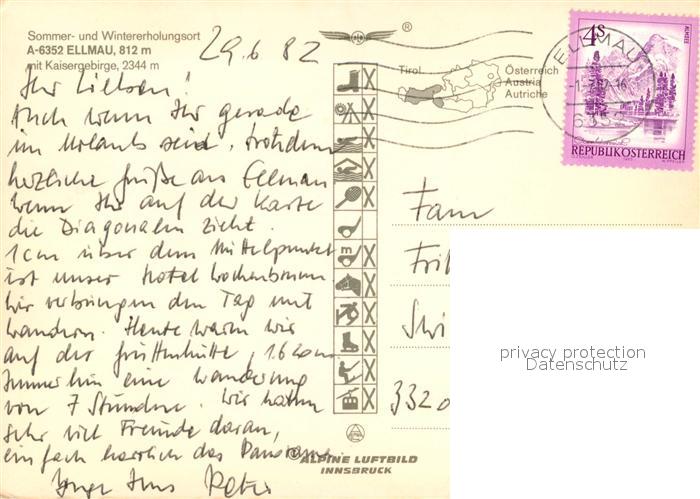 Sommer- und Wintererholungsort
A-6352 ELLMAU, 812 m
mit Kaisergebirge, 2344 m
29.6 82
Ihr Lieben!
Auch wenn Ihr gerade
im Urlaub seid, trotzdem
herzliche Grüße aus Ellmau
wenn Ihr auf der Karte
die Diagonalen zieht.
1cm über dem Mittelpunkt
ist unser Hotel Wochenbrunn
Wir verbringen den Tag mit
wandern. Heute waren wir
auf der Gruttenhütte, 1.620m
Immerhin eine Wanderung
von 7 Stunden. Wir hatten
sehr viel Freude daran,
einfach herrlich das Panorama
Peter
®
Tirol
Österreich
Austria
Autriche
ELLMAU
4S
ALMSEE
REPUBLIK ÖSTERREICH
Fam
3320
m
privacy protection
Datenschutz
© ALPINE LUFTBILD
INNSBRUCK